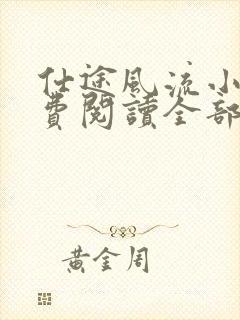 仕途风流小
費閱讀全部
黃金周